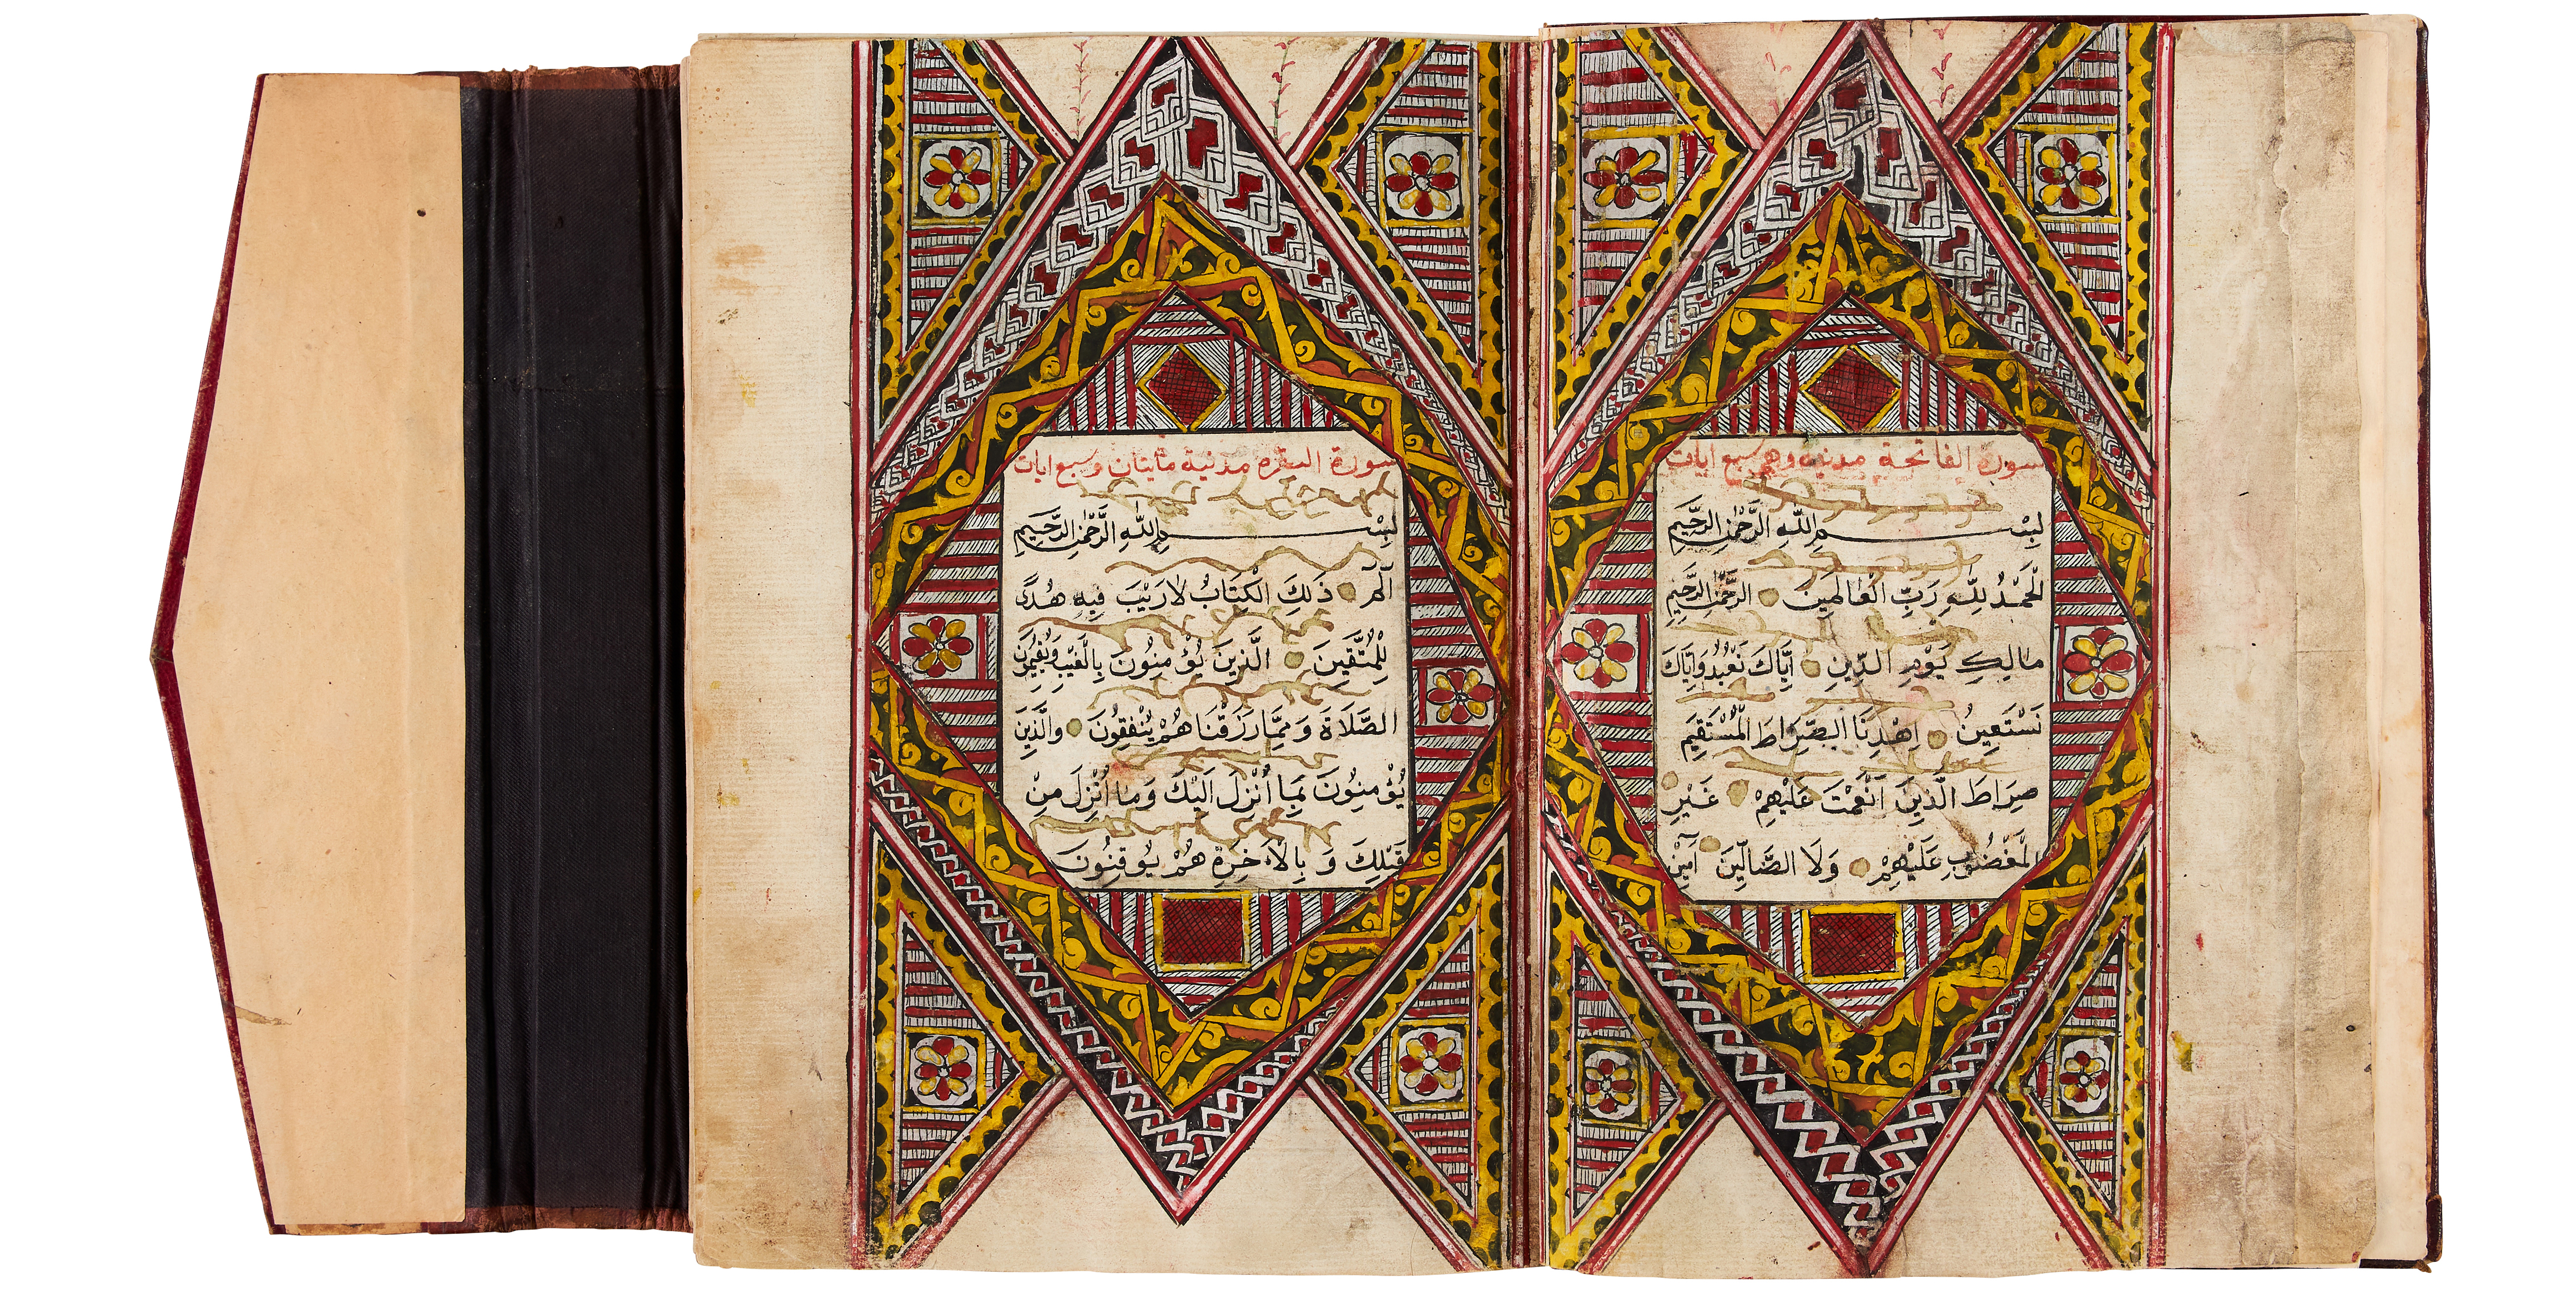 سورة الفاتحة مدنية وهي سبع ايات
بِسْمِ اللّٰهِ الرَّحْمٰنِ الرَّحِيمِ
اَلْحَمْدُ لِلّٰهِ رَبِّ الْعَالَمِينَ الرَّحْمٰنِ الرَّحِيمِ
مَالِكِ يَوْمِ الدِّينِ اِيَّاكَ نَعْبُدُ وَاِيَّاكَ
نَسْتَعِينُ اِهْدِنَا الصِّرَاطَ الْمُسْتَقِيمَ
صِرَاطَ الَّذِينَ اَنْعَمْتَ عَلَيْهِمْ غَيْرِ
الْمَغْضُوبِ عَلَيْهِمْ وَلَا الضَّالِّينَ آمِيْن
سورة البقره مدنية مايتان وسبع ايات
بِسْمِ اللّٰهِ الرَّحْمٰنِ الرَّحِيمِ
الٓمٓ ذَلِكَ الْكِتَابُ لَا رَيْبَ فِيهِ هُدًى
لِلْمُتَّقِينَ الَّذِينَ يُؤْمِنُونَ بِالْغَيْبِ وَيُقِيمُونَ
الصَّلَاةَ وَمِمَّا رَزَقْنَا هُمْ يُنْفِقُونَ وَالَّذِينَ
يُؤْمِنُونَ بِمَا أُنْزِلَ اِلَيْكَ وَمَا أُنْزِلَ مِنْ
قَبْلِكَ وَبِالْاَخِرَةِ هُمْ يُوقِنُونَ